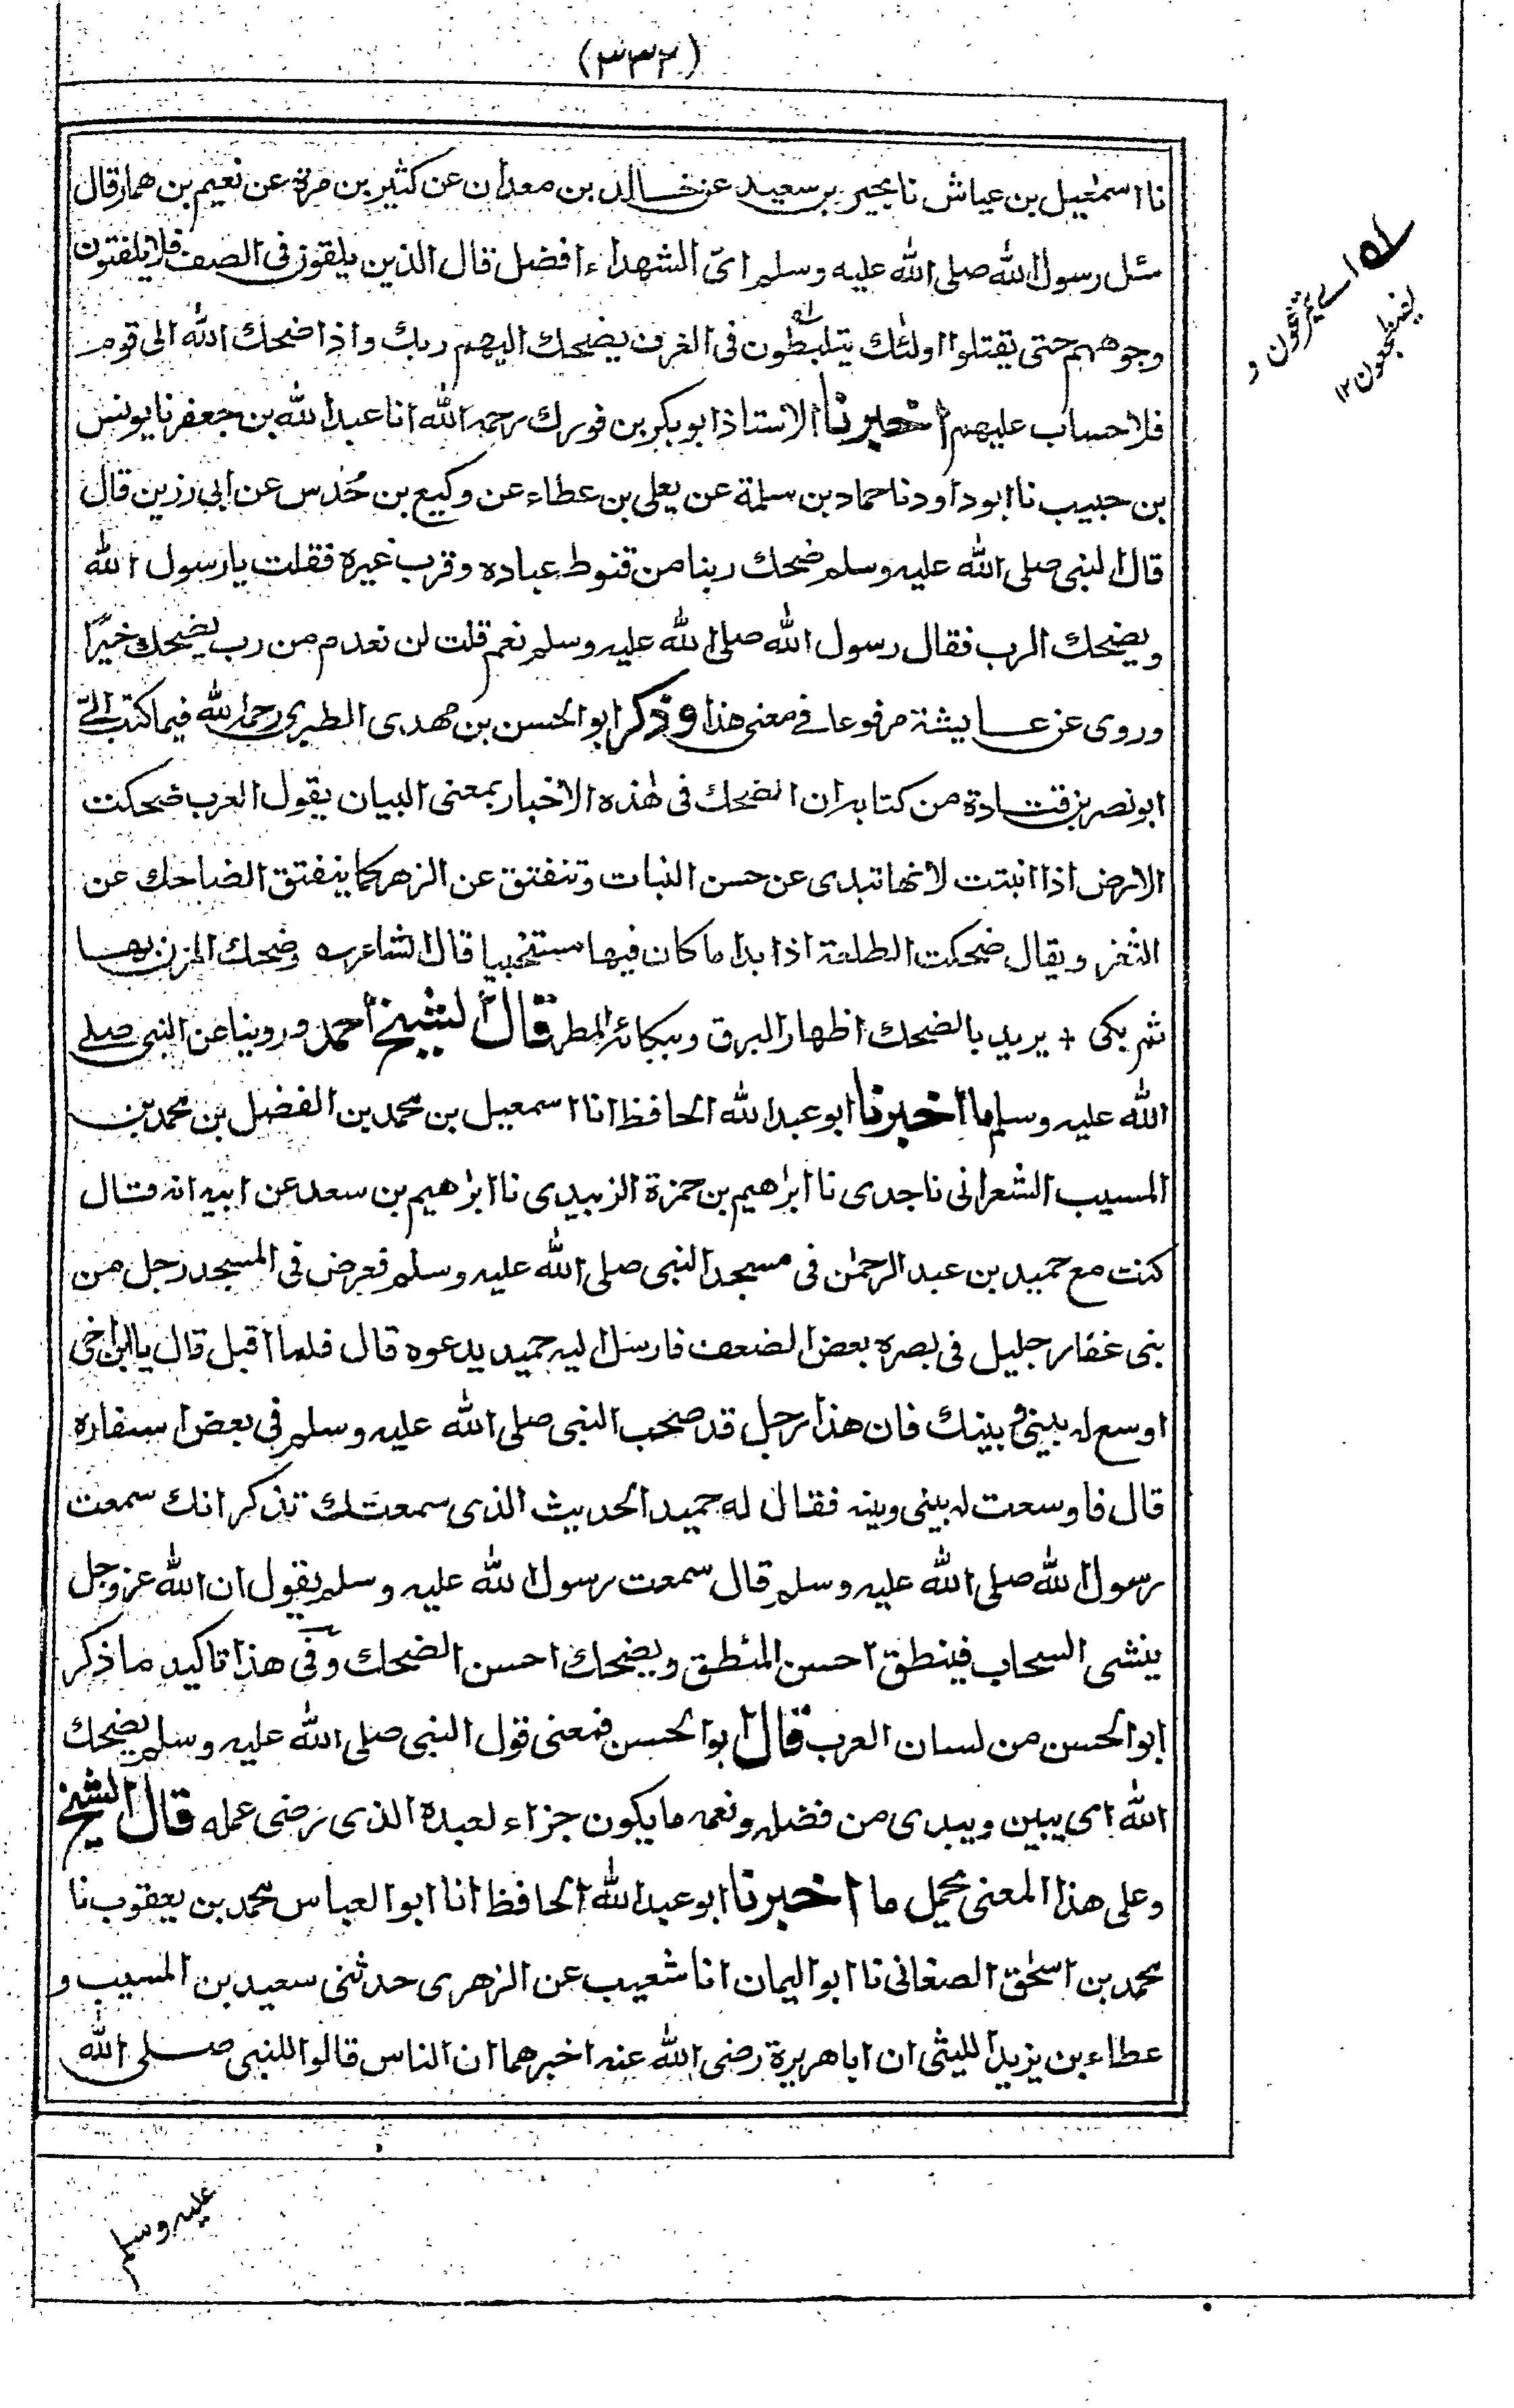 (٣٣٢)
نا اسمٰعيل بن عياش نا بحير بن سعيد عن خالد بن معدان عن كثير بن مرة عن نعيم بن همار قال
سئل رسول الله صلى الله عليه وسلم اىّ الشهداء افضل قال الذين يلقون فى الصف فلا يلفتون
وجوههم حتى يقتلوا اولئك يتلبطون فى الغرف يضحك اليهم ربك واذا ضحك الله الى قوم
فلا حساب عليهم اخبرنا الاستاذ ابو بكر بن فورك رحمه الله انا عبد الله بن جعفر نا يونس
بن حبيب نا ابو داود نا حماد بن سلمة عن يعلى بن عطاء عن وكيع بن حُدس عن ابى رزين قال
قال النبى صلى الله عليه وسلم ضحك ربنا من قنوط عباده وقرب غيره فقلت يا رسول الله
ويضحك الرب فقال رسول الله صلى الله عليه وسلم نعم قلت لن نعدم من رب يضحك خيرًا
وروى عن عايشة مرفوعا فے معنى هذا وذكر ابو الحسن بن مهدى الطبرى رحمه الله فيما كتب الىّ
ابو نصر بن قتادة من كتابه ان الضحك فى هٰذه الاخبار بمعنى البيان يقول العرب ضحكت
الارض اذا انبتت لانها تبدى عن حسن النبات وتنفتق عن الزهر كما ينفتق الضاحك عن
الثغر ويقال ضحكت الطلعة اذا بدا ما كان فيها مستخبيا قال الشاعر وضحك المزن بها
ثم بكى + يريد بالضحك اظهار البرق وببكائه المطر قال الشيخ احمد وروينا عن النبى صلى
الله عليه وسلم ما اخبرنا ابو عبد الله الحافظ انا اسمعيل بن محمد بن الفضل بن محمد بن
المسيب الشعرانى نا جدى نا ابراهيم بن حمزة الزبيدى نا ابراهيم بن سعد عن ابيه انه قال
كنت مع حميد بن عبد الرحمٰن فى مسجد النبى صلى الله عليه وسلم فعرض فى المسجد رجل من
بنى غفار جليل فى بصره بعض الضعف فارسل اليه حميد يدعوه قال فلما اقبل قال يا ابن اخى
اوسع له بينى وبينك فان هذا رجل قد صحب النبى صلى الله عليه وسلم فى بعض اسفاره
قال فاوسعت له بينى وبينه فقال له حميد الحديث الذى سمعتك تذكر انك سمعت
رسول الله صلى الله عليه وسلم قال سمعت رسول الله عليه وسلم يقول ان الله عز وجل
ينشى السحاب فينطق احسن المنطق ويضحك احسن الضحك وفى هذا تاكيد ما ذكر
ابو الحسن من لسان العرب قال ابو الحسن فمعنى قول النبى صلى الله عليه وسلم يضحك
الله اى يبين ويبدى من فضله ونعمه ما يكون جزاء لعبده الذى رضى عمله قال الشيخ
وعلى هذا المعنى يحمل ما اخبرنا ابو عبد الله الحافظ انا ابو العباس محمد بن يعقوب نا
محمد بن اسحٰق الصغانى نا ابو اليمان انا شعيب عن الزهرى حدثنى سعيد بن المسيب و
عطاء بن يزيد الليثى ان ابا هريرة رضى الله عنه اخبرهما ان الناس قالوا للنبى صلى الله
عليه وسلم
اے يتمرغون و
يضطجعون ١٢